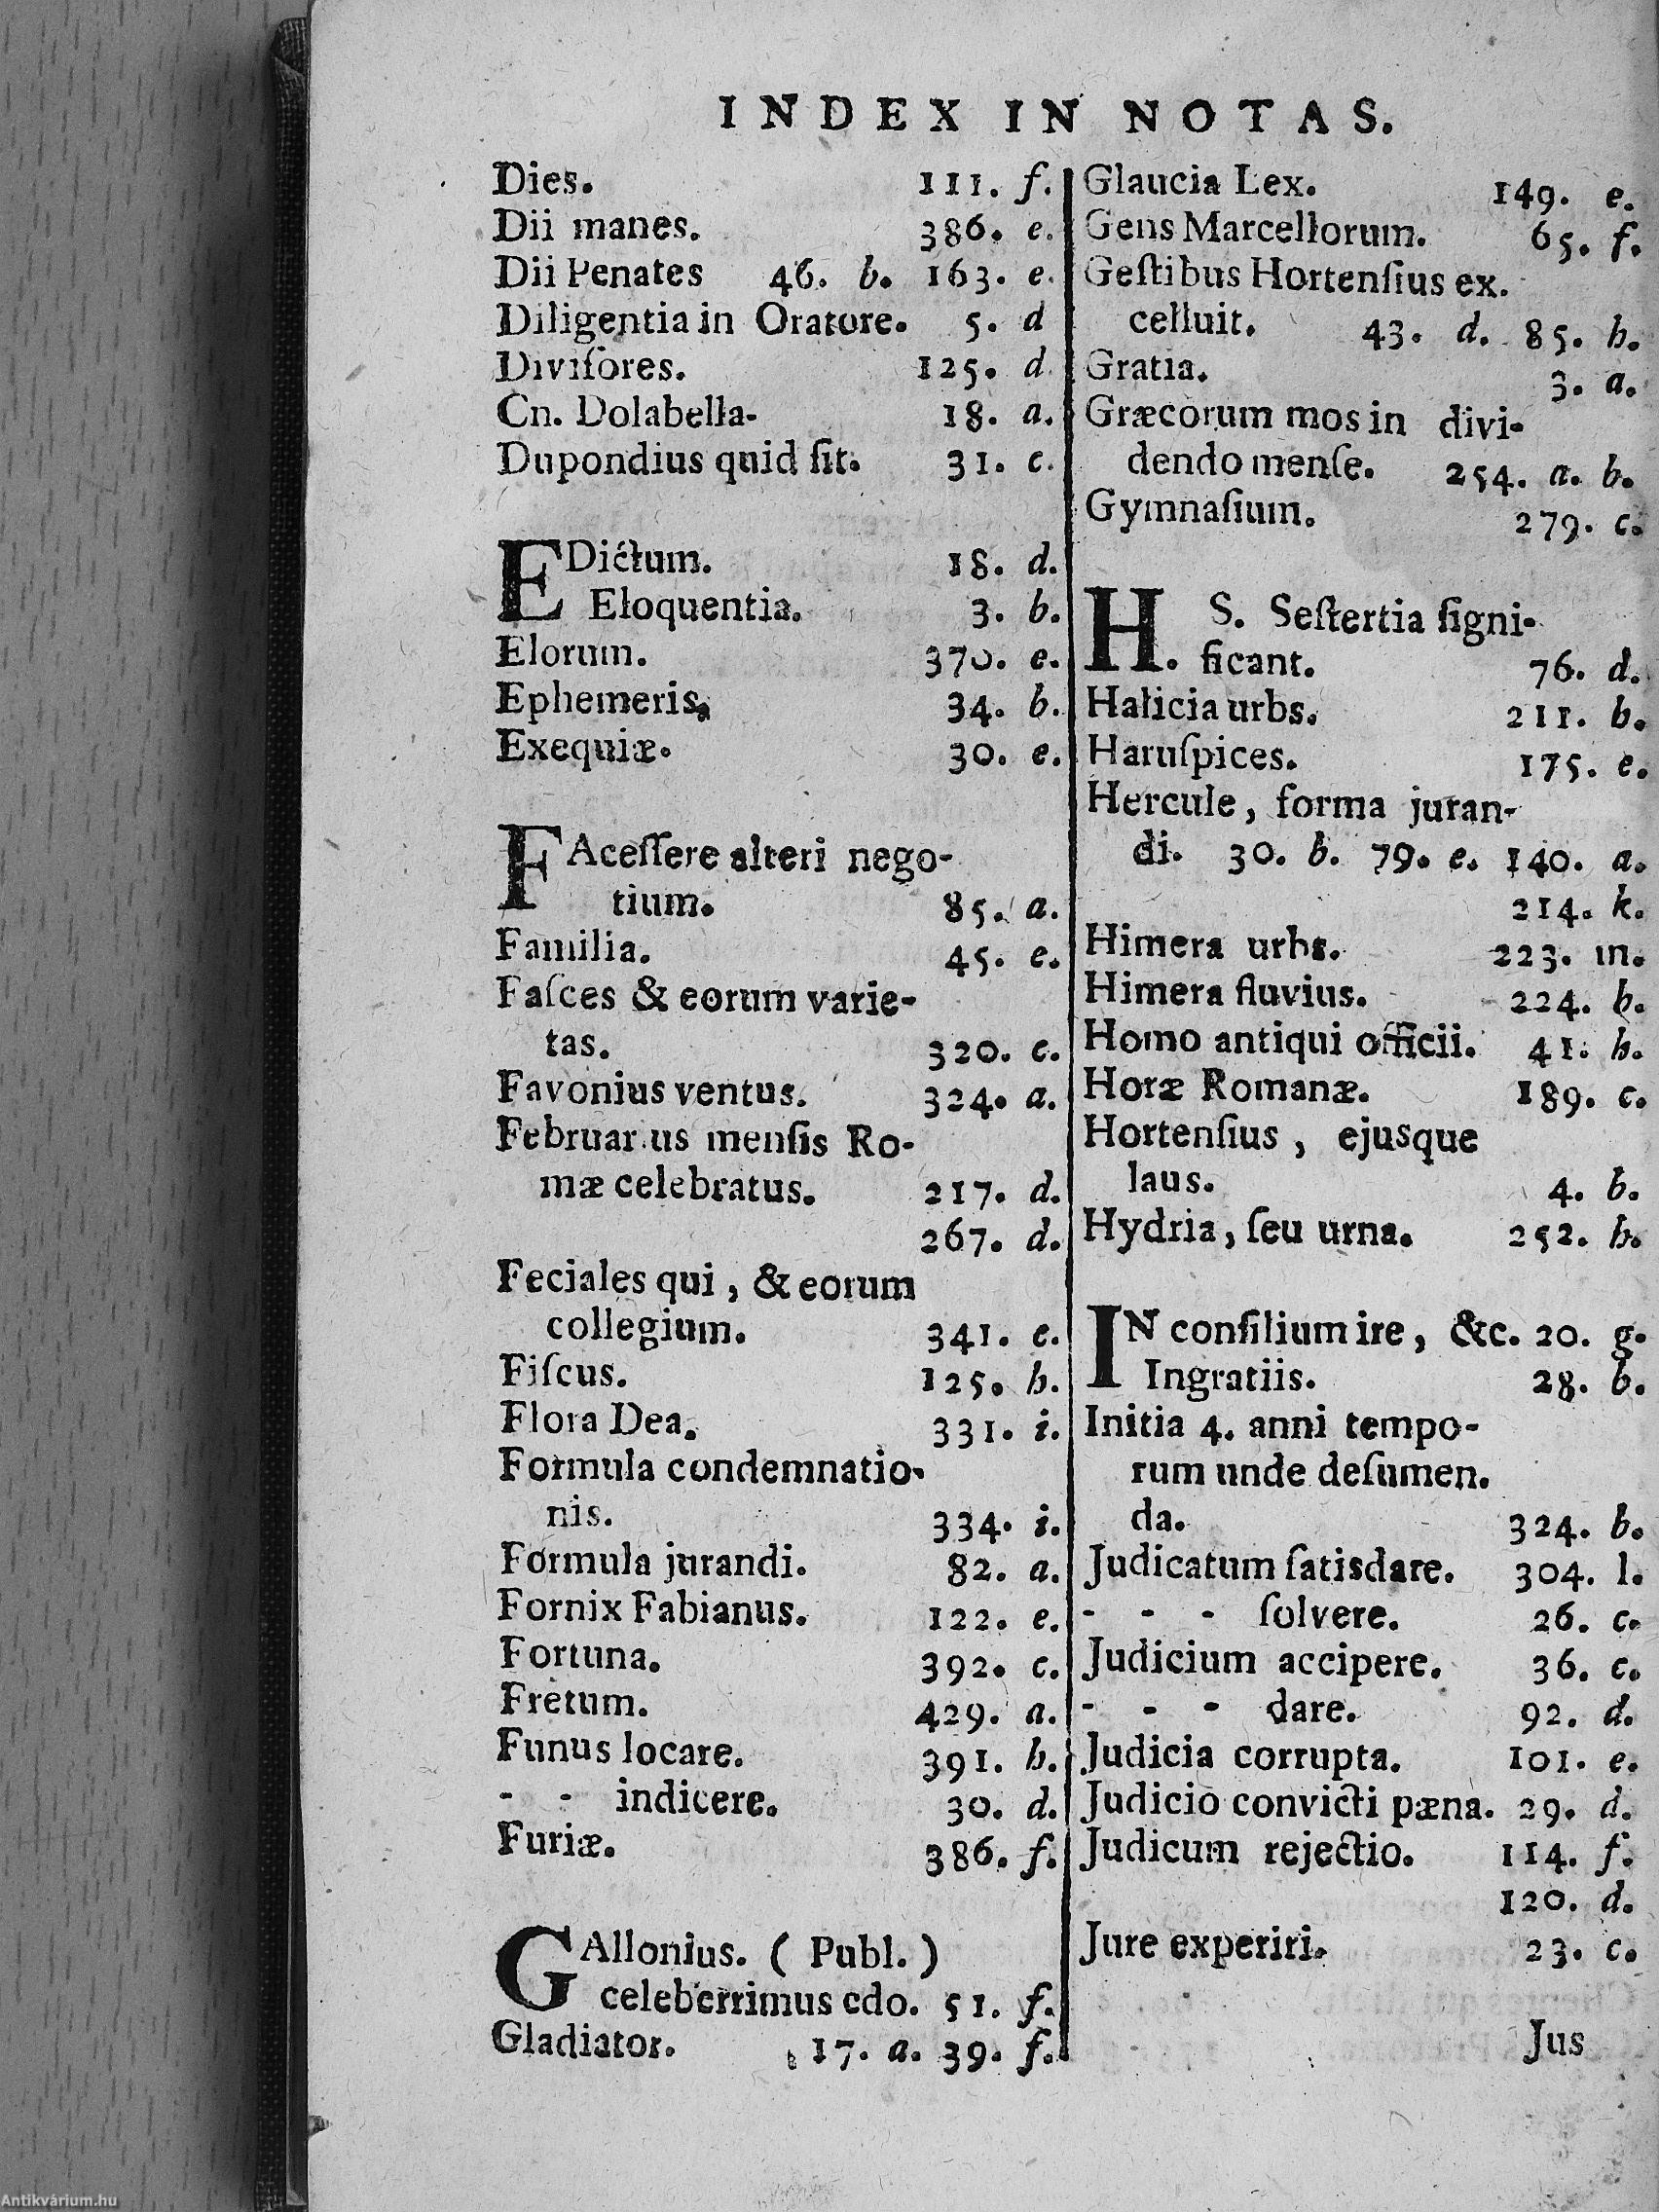 INDEX IN NOTAS.
Dies. 111. f.
Dii manes. 386. e.
Dii Penates 46. b. 163. e.
Diligentia in Oratore. 5. d
Diviſores. 125. d
Cn. Dolabella- 18. a.
Dupondius quid ſit. 31. c.
EDictum. 18. d.
Eloquentia. 3. b.
Elorum. 370. e.
Ephemeris. 34. b.
Exequiæ. 30. e.
FAceſſere alteri nego-
tium. 85. a.
Familia. 45. e.
Faſces & eorum varie-
tas. 320. c.
Favonius ventus. 324. a.
Februar us menſis Ro-
mæ celebratus. 217. d.
267. d.
Feciales qui, & eorum
collegium. 341. e.
Fiſcus. 125. h.
Flora Dea. 331. i.
Formula condemnatio-
nis. 334. i.
Formula jurandi. 82. a.
Fornix Fabianus. 122. e.
Fortuna. 392. c.
Fretum. 429. a.
Funus locare. 391. h.
- - indicere. 30. d.
Furiæ. 386. f.
GAllonius. ( Publ. )
celeberrimus edo. 51. f.
Gladiator. 17. a. 39. f.
Glaucia Lex. 149. e.
Gens Marcellorum. 65. f.
Geſtibus Hortenſius ex-
celluit. 43. d. 85. h.
Gratia. 3. a.
Græcorum mos in divi-
dendo menſe. 254. a. b.
Gymnaſium. 279. c.
H. S. Seſtertia ſigni-
ficant. 76. d.
Halicia urbs. 211. b.
Haruſpices. 175. e.
Hercule, forma juran-
di. 30. b. 79. e. 140. a.
214. k.
Himera urbs. 223. m.
Himera fluvius. 224. b.
Homo antiqui officii. 41. h.
Horæ Romanæ. 189. c.
Hortenſius, ejusque
laus. 4. b.
Hydria, ſeu urna. 252. h.
IN conſilium ire, &c. 20. g.
Ingratiis. 28. b.
Initia 4. anni tempo-
rum unde deſumen.
da. 324. b.
Judicatum ſatisdare. 304. l.
- - - ſolvere. 26. c.
Judicium accipere. 36. c.
- - - dare. 92. d.
Judicia corrupta. 101. e.
Judicio convicti pæna. 29. d.
Judicum rejectio. 114. f.
120. d.
Jure experiri. 23. c.
Jus
Antikvárium.hu